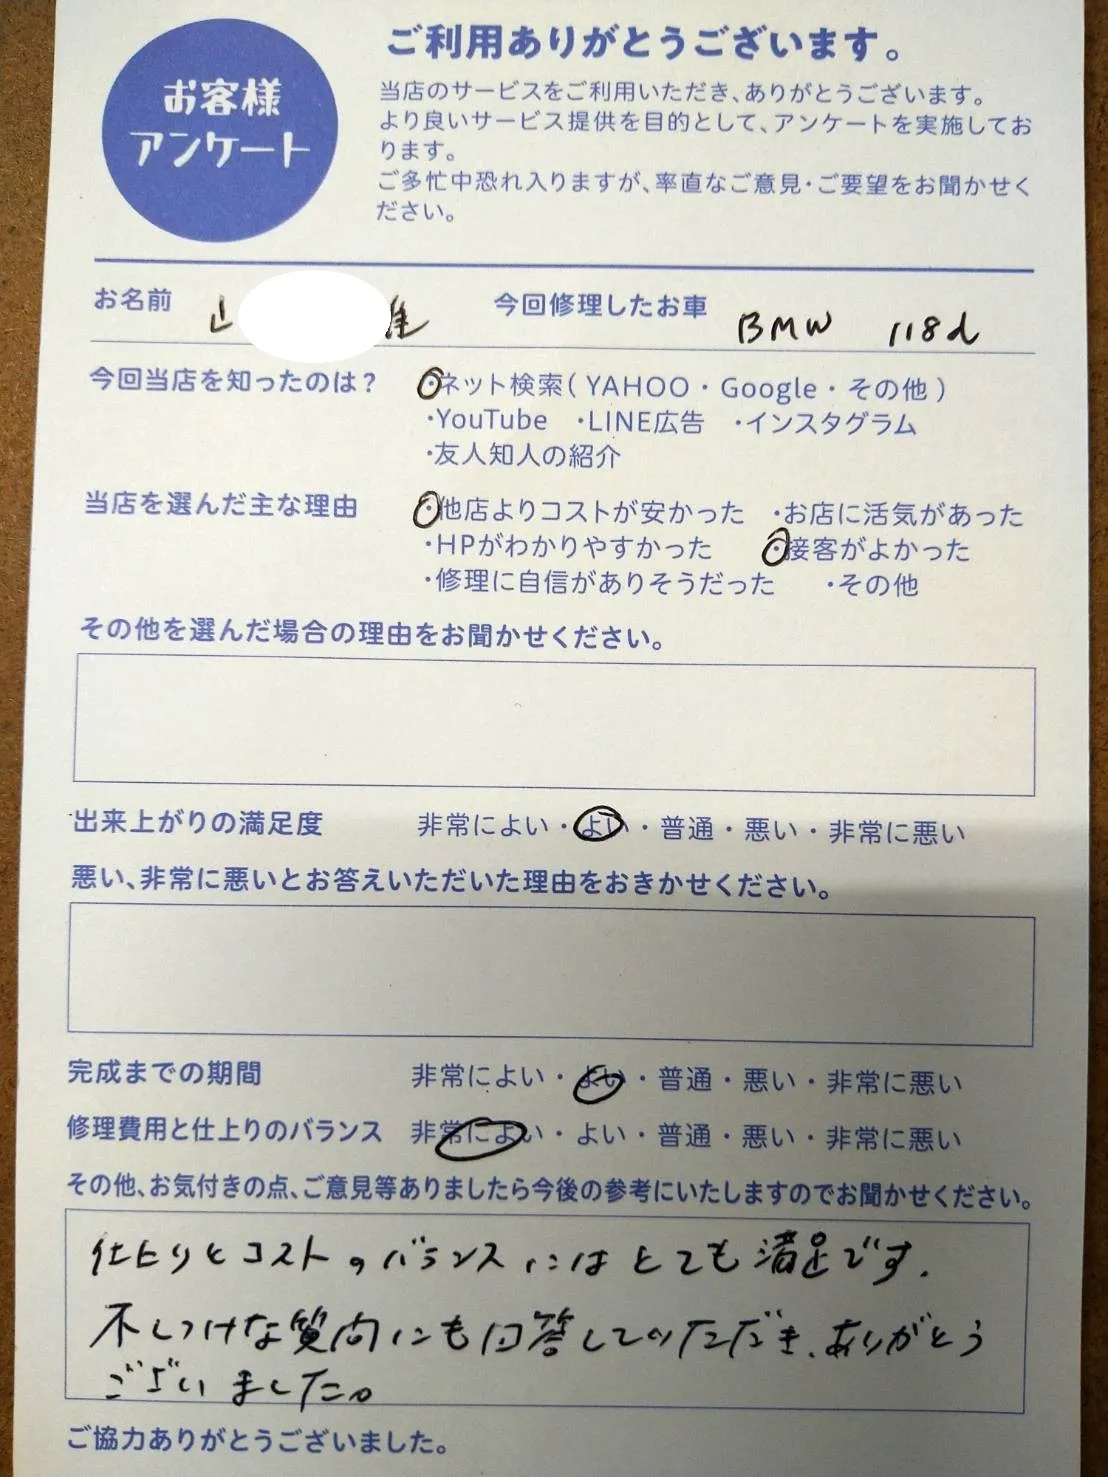 お客様
アンケート
ご利用ありがとうございます。
当店のサービスをご利用いただき、ありがとうございます。
より良いサービス提供を目的として、アンケートを実施してお
ります。
ご多忙中恐れ入りますが、率直なご意見・ご要望をお聞かせく
ださい。
お名前 山 雄 今回修理したお車 BMW 118d
今回当店を知ったのは？ ・ネット検索（YAHOO・Google・その他）
・YouTube ・LINE広告 ・インスタグラム
・友人知人の紹介
当店を選んだ主な理由 ・他店よりコストが安かった ・お店に活気があった
・HPがわかりやすかった ・接客がよかった
・修理に自信がありそうだった ・その他
その他を選んだ場合の理由をお聞かせください。
出来上がりの満足度 非常によい・よい・普通・悪い・非常に悪い
悪い、非常に悪いとお答えいただいた理由をおきかせください。
完成までの期間 非常によい・よい・普通・悪い・非常に悪い
修理費用と仕上りのバランス 非常によい・よい・普通・悪い・非常に悪い
その他、お気付きの点、ご意見等ありましたら今後の参考にいたしますのでお聞かせください。
仕上りとコストのバランスにはとても満足です。
不しつけな質問にも回答していただき、ありがとう
ございました。
ご協力ありがとうございました。